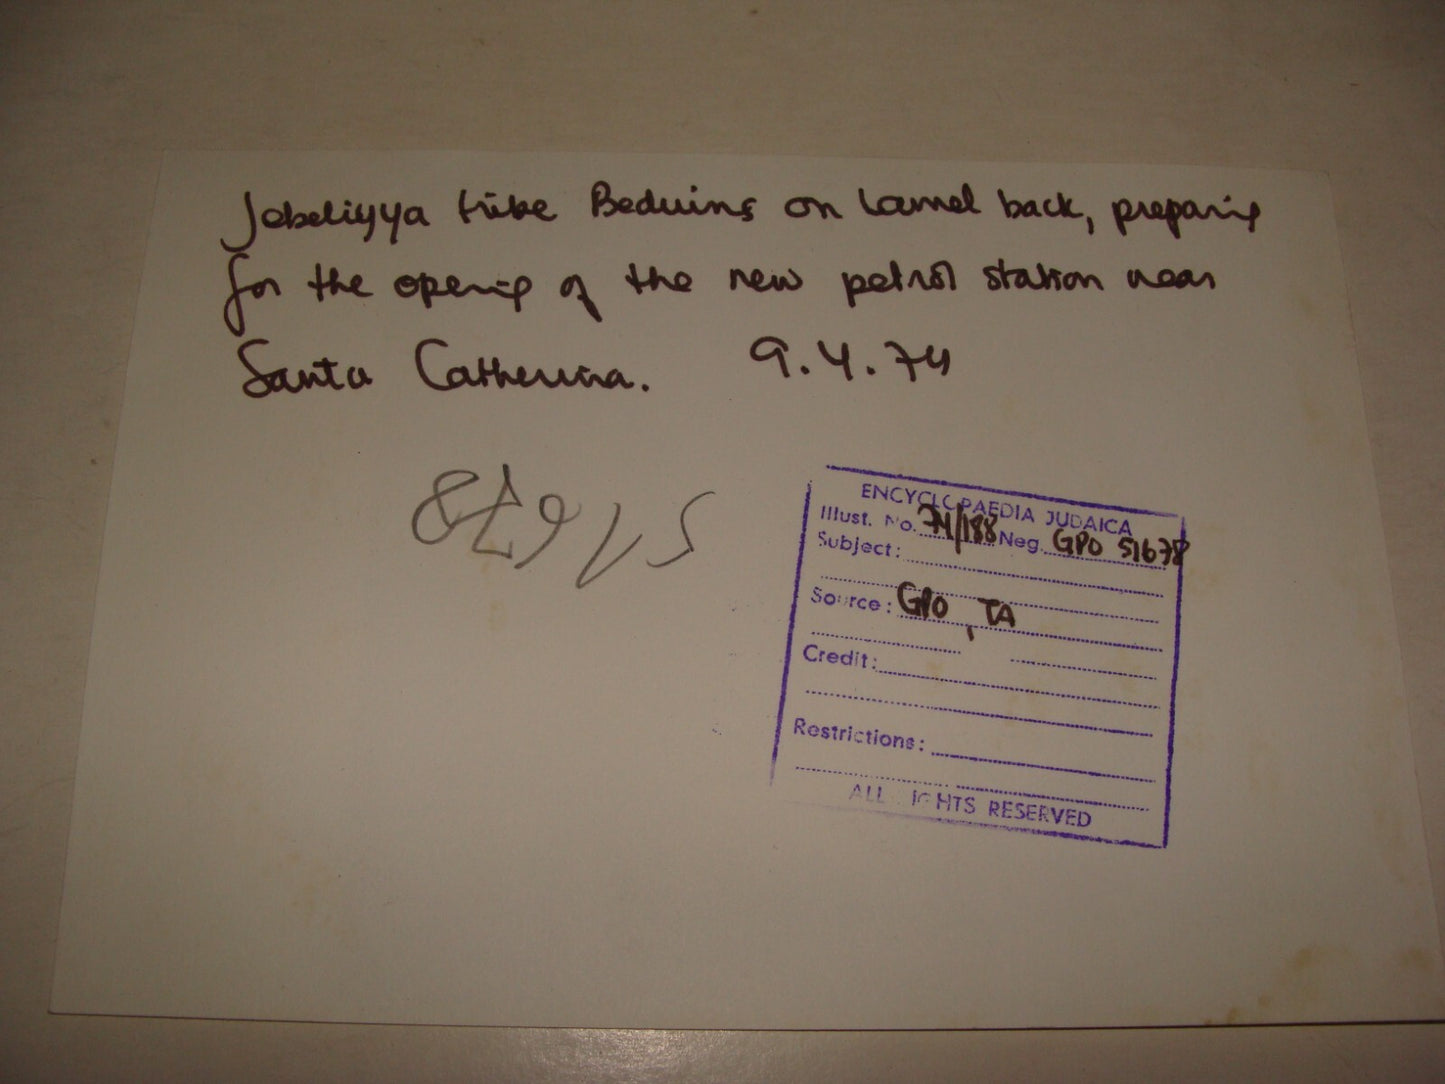 Jebeliyya tribe Beduins on Camel back, preparing
for the opening of the new petrol station near
Santa Catherina. 9.4.74
51678
ENCYCLOPAEDIA JUDAICA
Illust. No. 74/188 Neg. GPO 51678
Subject:
Source: GPO, TA
Credit:
Restrictions:
ALL RIGHTS RESERVED